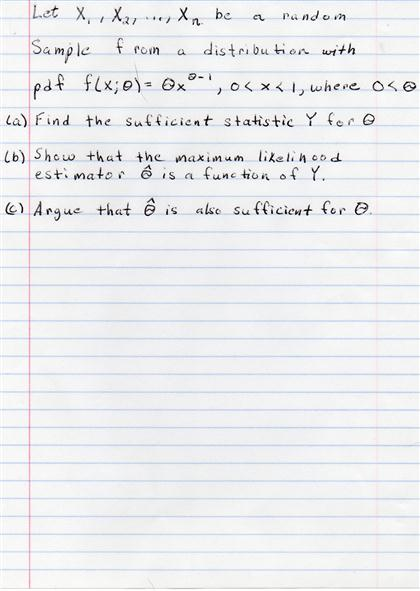 Let X₁, X₂, ..., Xₙ be a random
Sample from a distribution with
pdf f(x;θ) = θx^(θ-1), 0 < x < 1, where 0 < θ
(a) Find the sufficient statistic Y for θ
(b) Show that the maximum likelihood
estimator θ̂ is a function of Y.
(c) Argue that θ̂ is also sufficient for θ.